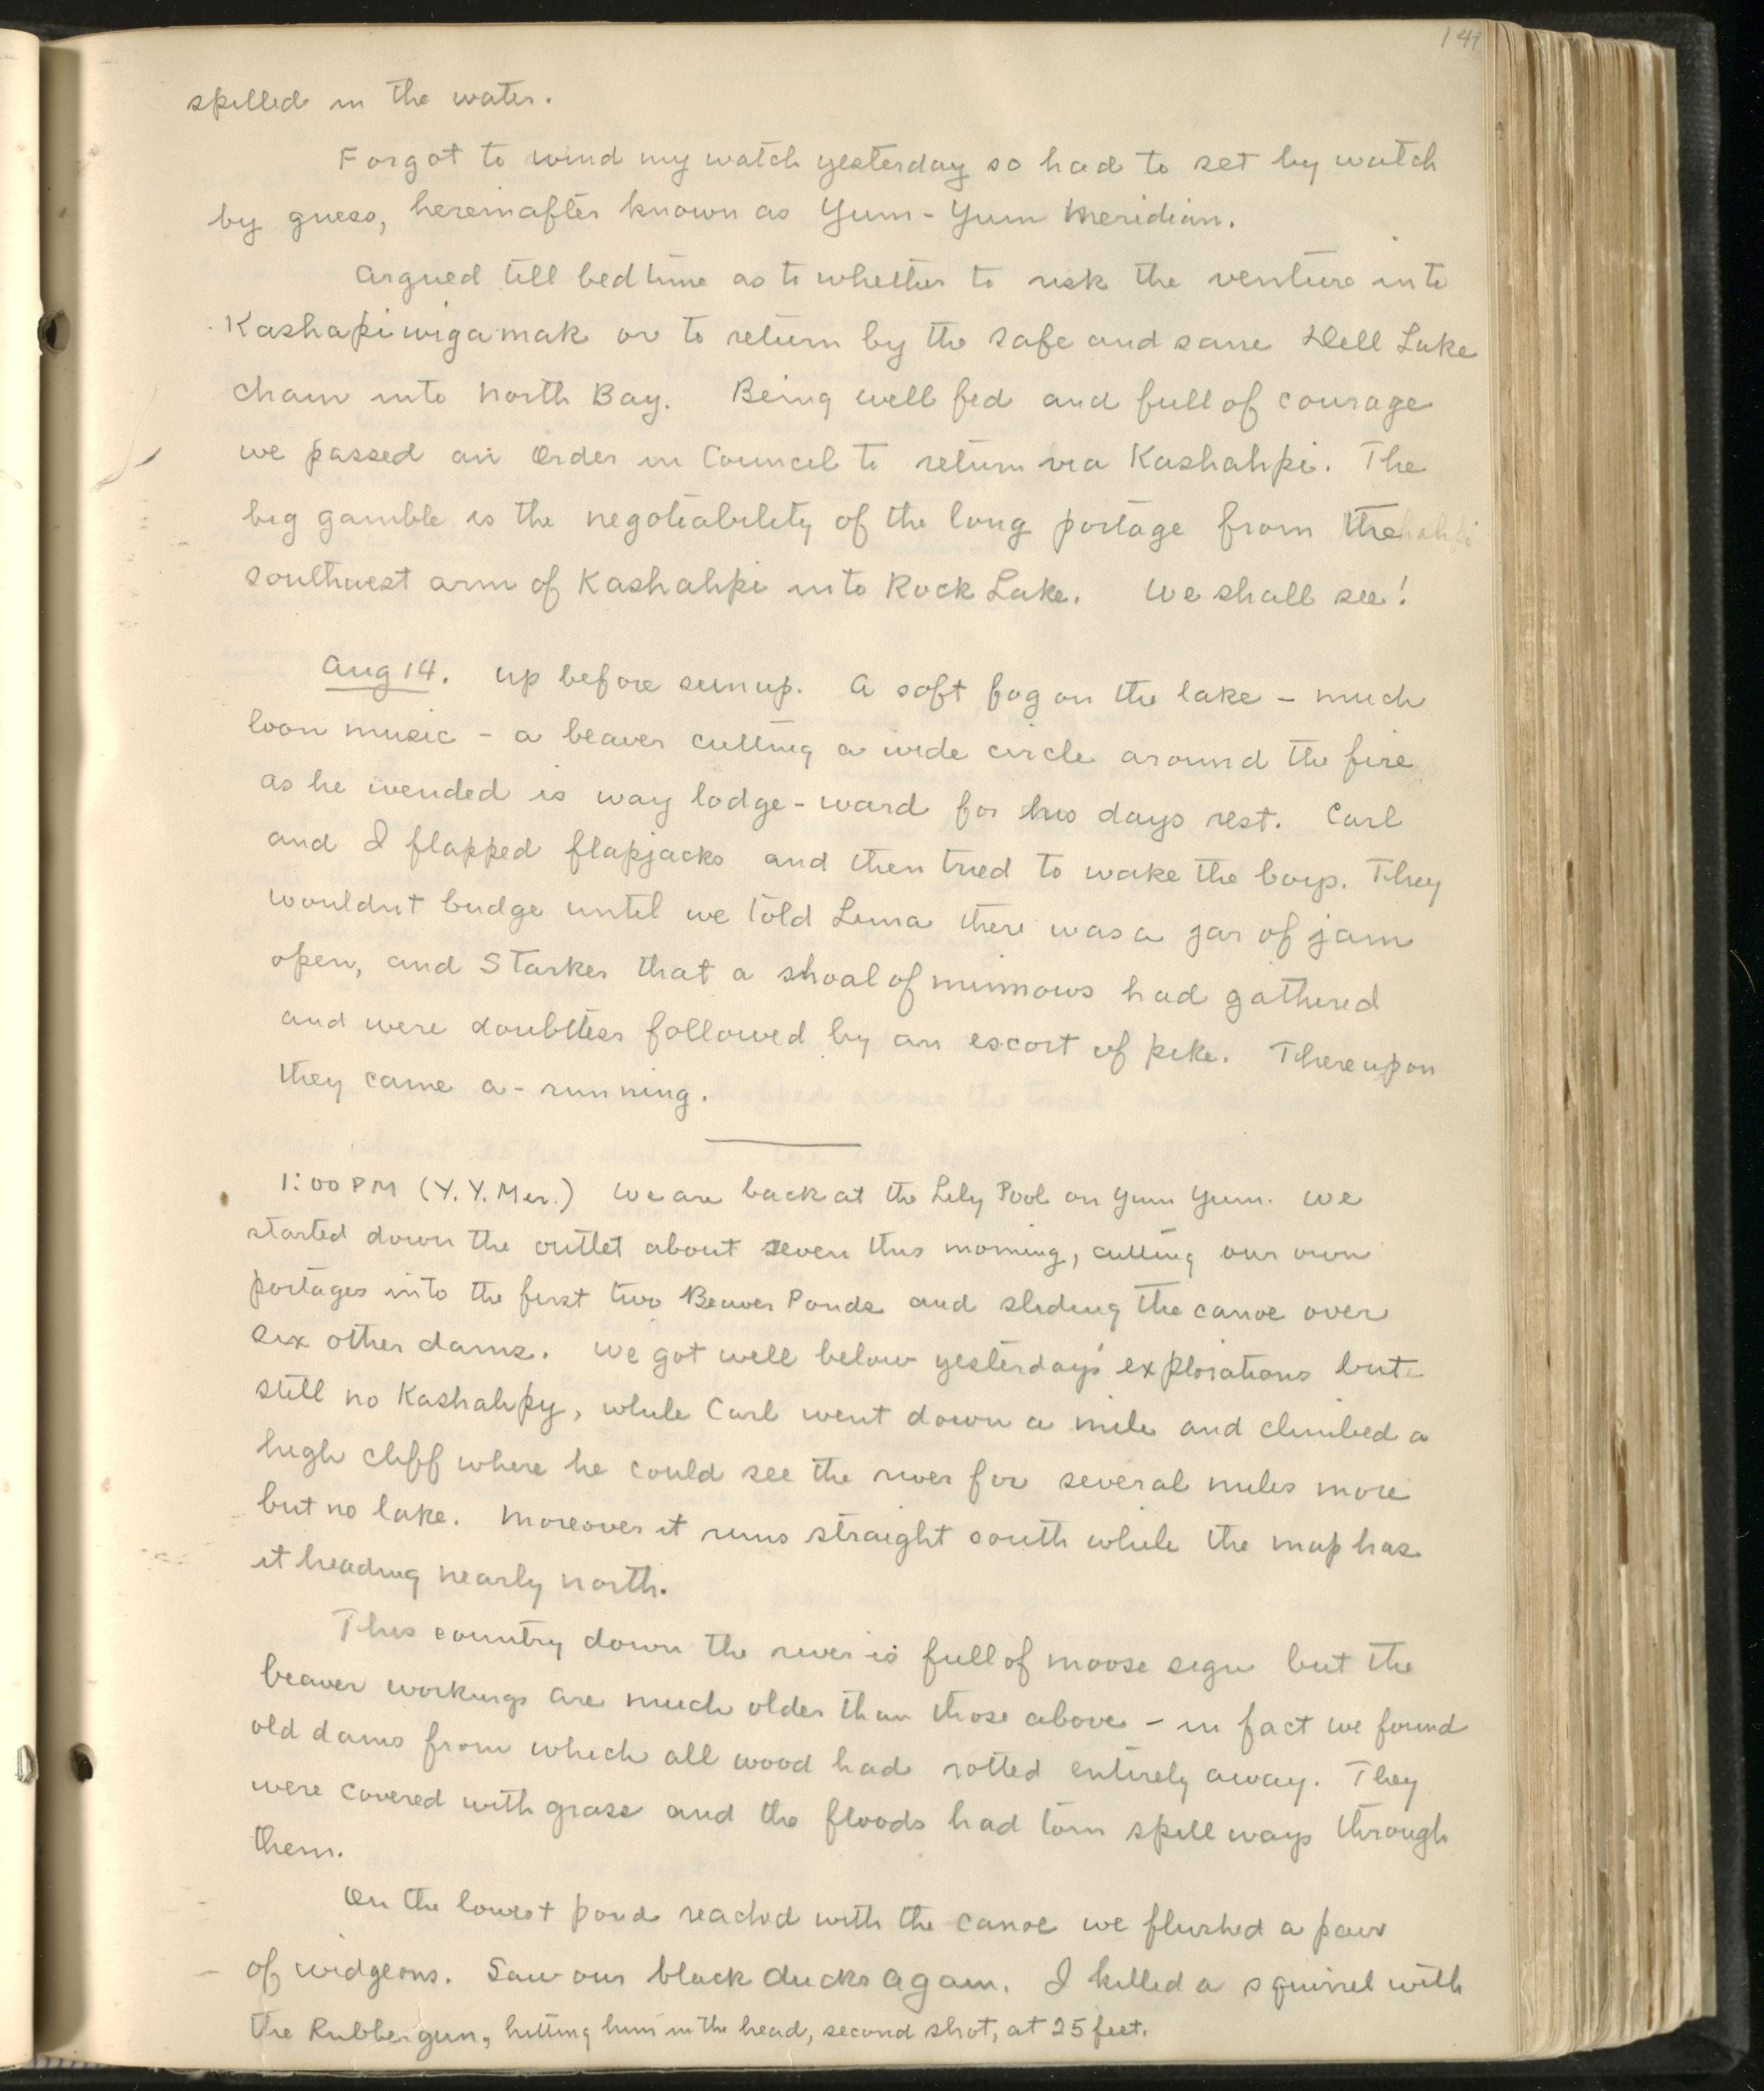 141
spilled in the water.
Forgot to wind my watch yesterday so had to set by watch
by guess, hereinafter known as Yum-Yum Meridian.
Argued till bedtime as to whether to risk the venture into
Kashapiwigamak or to return by the safe and sane Dell Lake
chain into North Bay. Being well fed and full of courage
we passed an Order in Council to return via Kashahpi. The
big gamble is the negotiability of the long portage from the
southwest arm of Kashahpi into Rock Lake. We shall see!
Aug 14. Up before sunup. A soft fog on the lake - much
loon music - a beaver cutting a wide circle around the fire
as he wended is way lodge-ward for his days rest. Carl
and I flapped flapjacks and then tried to wake the boys. They
wouldnt budge until we told Luna there was a jar of jam
open, and Starker that a shoal of minnows had gathered
and were doubtless followed by an escort of pike. Thereupon
they came a-running.
1:00 PM (Y.Y. Mer.) We are back at the Lily Pool on Yum Yum. We
started down the outlet about seven this morning, cutting our own
portages into the first two Beaver Ponds and sliding the canoe over
six other dams. We got well below yesterday's explorations but
still no Kashahpy, while Carl went down a mile and climbed a
high cliff where he could see the river for several miles more
but no lake. Moreover it runs straight south while the map has
it heading nearly north.
This country down the river is full of moose sign but the
beaver workings are much older than those above - in fact we found
old dams from which all wood had rotted entirely away. They
were covered with grass and the floods had torn spillways through
them.
On the lowest pond reached with the canoe we flushed a pair
of widgeons. Saw our black ducks again. I killed a squirrel with
the Rubbergun, hitting him in the head, second shot, at 25 feet.